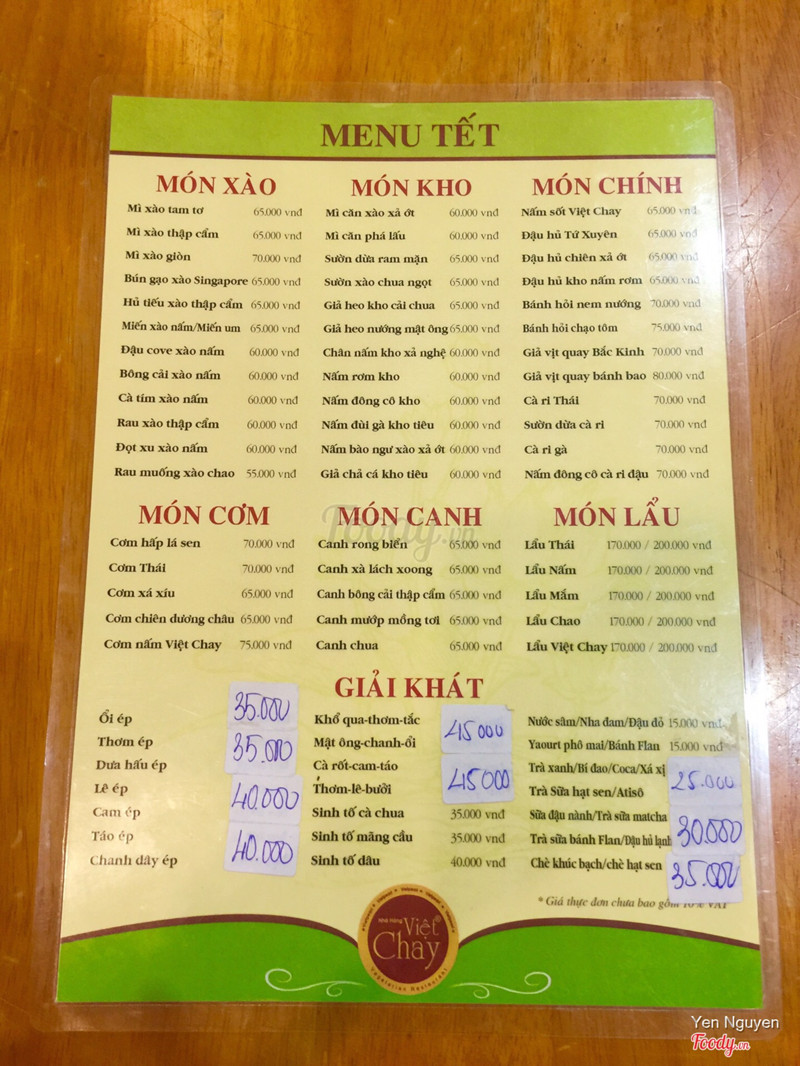 MENU TẾT
MÓN XÀO
Mì xào tam tơ 65.000 vnđ
Mì xào thập cẩm 65.000 vnđ
Mì xào giòn 70.000 vnđ
Bún gạo xào Singapore 65.000 vnđ
Hủ tiếu xào thập cẩm 65.000 vnđ
Miến xào nấm/Miến um 65.000 vnđ
Đậu cove xào nấm 60.000 vnđ
Bông cải xào nấm 60.000 vnđ
Cà tím xào nấm 60.000 vnđ
Rau xào thập cẩm 60.000 vnđ
Đọt xu xào nấm 60.000 vnđ
Rau muống xào chao 55.000 vnđ
MÓN KHO
Mì căn xào xả ớt 60.000 vnđ
Mì căn phá lấu 60.000 vnđ
Sườn dừa ram mặn 65.000 vnđ
Sườn xào chua ngọt 65.000 vnđ
Giả heo kho cải chua 65.000 vnđ
Giả heo nướng mật ong 65.000 vnđ
Chân nấm kho xả nghệ 60.000 vnđ
Nấm rơm kho 60.000 vnđ
Nấm đông cô kho 60.000 vnđ
Nấm đùi gà kho tiêu 60.000 vnđ
Nấm bào ngư xào xả ớt 60.000 vnđ
Giả chả cá kho tiêu 60.000 vnđ
MÓN CHÍNH
Nấm sốt Việt Chay 65.000 vnđ
Đậu hủ Tứ Xuyên 65.000 vnđ
Đậu hủ chiên xả ớt 65.000 vnđ
Đậu hủ kho nấm rơm 65.000 vnđ
Bánh hỏi nem nướng 70.000 vnđ
Bánh hỏi chạo tôm 75.000 vnđ
Giả vịt quay Bắc Kinh 70.000 vnđ
Giả vịt quay bánh bao 80.000 vnđ
Cà ri Thái 70.000 vnđ
Sườn dừa cà ri 70.000 vnđ
Cà ri gà 70.000 vnđ
Nấm đông cô cà ri đậu 70.000 vnđ
MÓN CƠM
Cơm hấp lá sen 70.000 vnđ
Cơm Thái 70.000 vnđ
Cơm xá xíu 65.000 vnđ
Cơm chiên dương châu 65.000 vnđ
Cơm nấm Việt Chay 75.000 vnđ
MÓN CANH
Canh rong biển 65.000 vnđ
Canh xà lách xoong 65.000 vnđ
Canh bông cải thập cẩm 65.000 vnđ
Canh mướp mồng tơi 65.000 vnđ
Canh chua 65.000 vnđ
MÓN LẨU
Lẩu Thái 170.000 / 200.000 vnđ
Lẩu Nấm 170.000 / 200.000 vnđ
Lẩu Mắm 170.000 / 200.000 vnđ
Lẩu Chao 170.000 / 200.000 vnđ
Lẩu Việt Chay 170.000 / 200.000 vnđ
Foody.vn
GIẢI KHÁT
Ổi ép 35.000
Thơm ép 35.000
Dưa hấu ép
Lê ép 40.000
Cam ép
Táo ép 40.000
Chanh dây ép
Khổ qua-thơm-tắc 45000
Mật ông-chanh-ổi
Cà rốt-cam-táo 45000
Thơm-lê-bưởi
Sinh tố cà chua 35.000 vnđ
Sinh tố mãng cầu 35.000 vnđ
Sinh tố dâu 40.000 vnđ
Nước sâm/Nha đam/Đậu đỏ 15.000 vnđ
Yaourt phô mai/Bánh Flan 15.000 vnđ
Trà xanh/Bí đao/Coca/Xá xị 25.000
Trà Sữa hạt sen/Atisô
Sữa đậu nành/Trà sữa matcha 30.000
Trà sữa bánh Flan/Đậu hủ lạnh
Chè khúc bạch/chè hạt sen 35.000
* Giá thực đơn chưa bao gồm 10% VAT
Nhà Hàng
Việt Chay
Vegetarian Restaurant
Yen Nguyen
Foody.vn